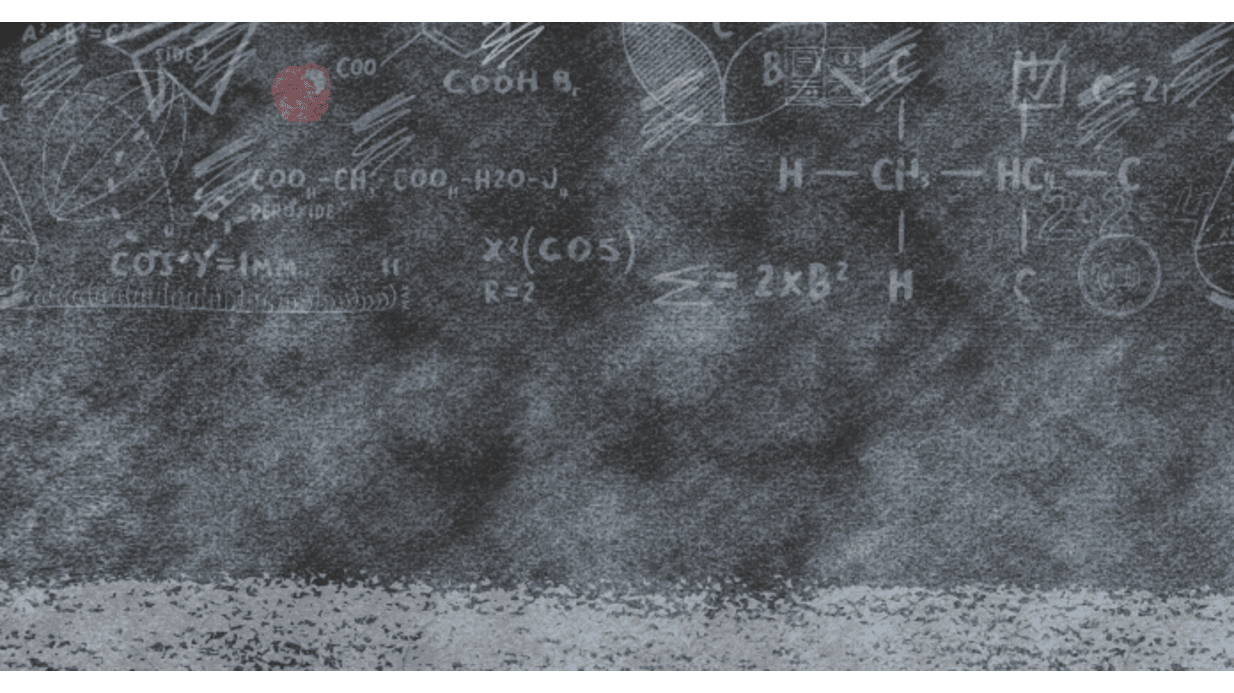 A²+B²=C²
SIDE 1
COO
COOH Br
C
B C H C=2r
COOH-CH, COOH-H2O-J4
PEROXIDE
H — CH3 — HC4 — C
2+2
COS*Y=1MM
X²(COS)
R=2
Σ= 2xB²
H C